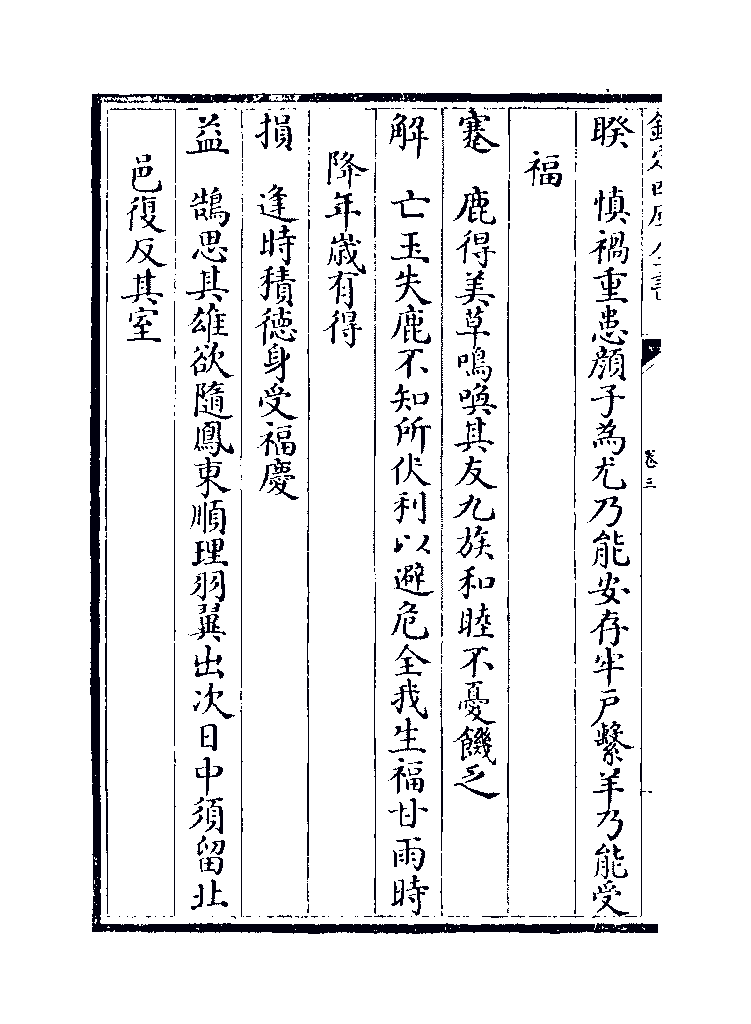 欽定四庫全書
卷三
睽　慎禍重患顔子為尤乃能安存牢戸繫羊乃能受
福
蹇　鹿得美草鳴喚其友九族和睦不憂饑乏
解　亡玉失鹿不知所伏利以避危全我生福甘雨時
降年歲有得
損　逢時積德身受福慶
益　鵠思其雄欲隨鳳東順理羽翼出次日中須留北
邑復反其室